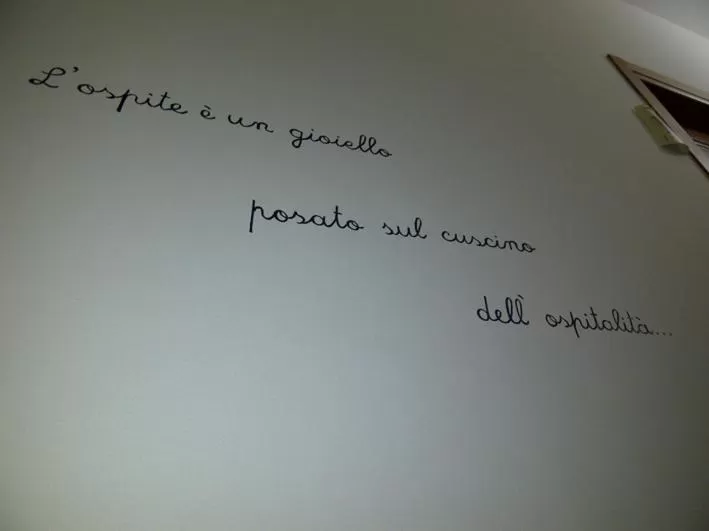 L'ospite è un gioiello
posato sul cuscino
dell' ospitalità...